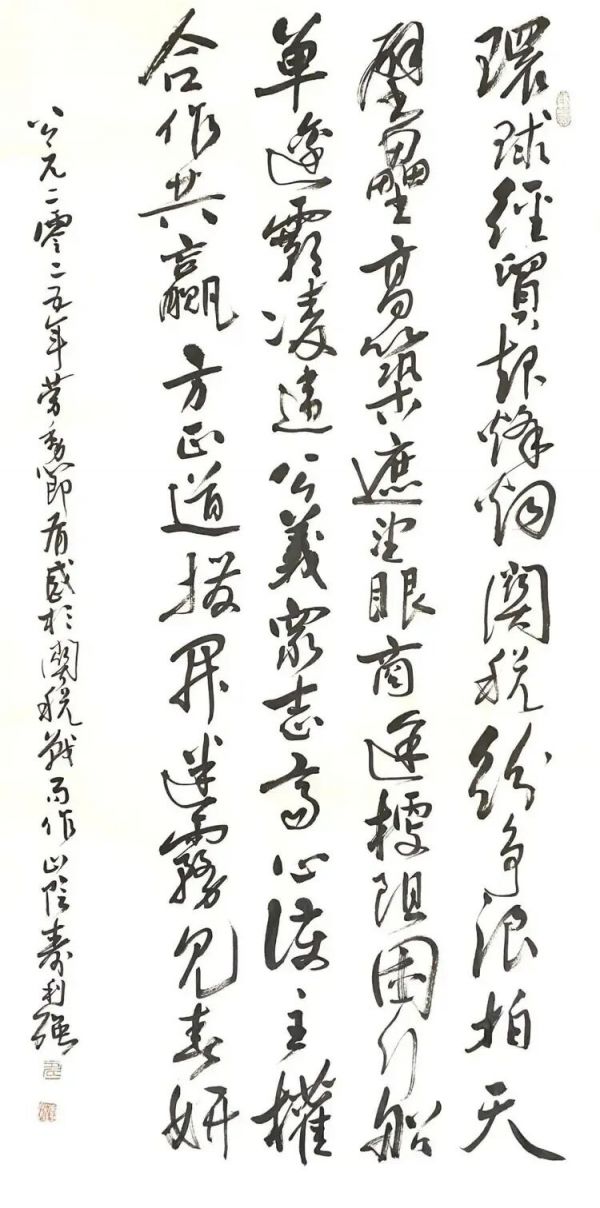 環球經貿起烽烟關税紛争浪拍天
壁壘高築遮望眼商途梗阻困行船
單邊霸凌違公義衆志齊心護主權
合作共贏方正道撥開迷霧見春妍
公元二零二五年勞動節有感於關税戰而作山陰壽利强